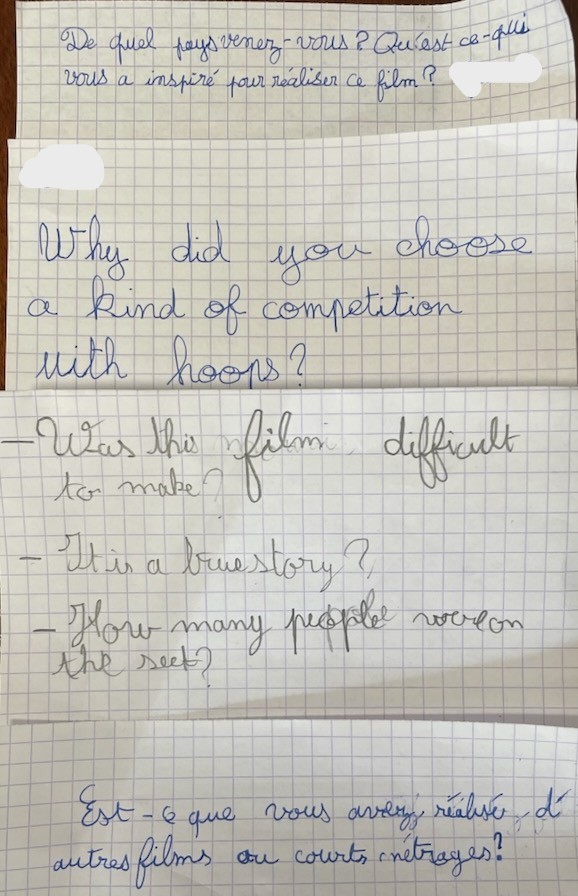 De quel pays venez-vous? Qu'est ce-qui
vous a inspiré pour réaliser ce film?
Why did you choose
a kind of competition
with hoops?
- Was this film difficult
to make?
- It is a true story?
- How many people were on
the seet?
Est-ce que vous avez réalisé d'
autres films ou courts métrages?